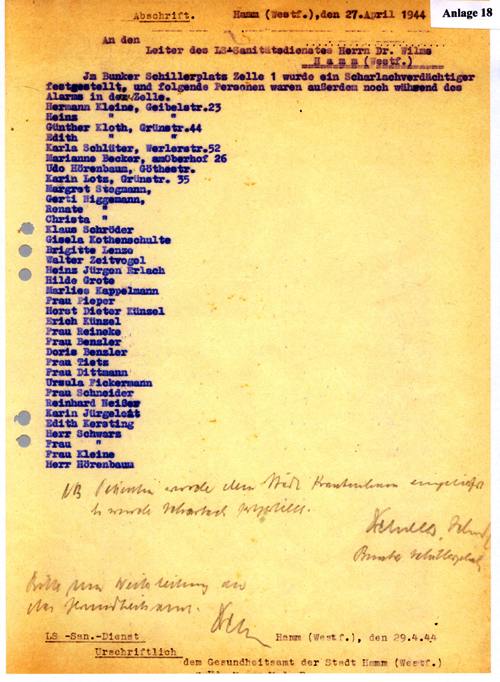 Abschrift. Hamm (Westf.),den 27.April 1944
Anlage 18
An den
Leiter des LS-Sanitätsdienstes Herrn Dr. Wilms
Hamm (Westf.)
Jm Bunker Schillerplats Zelle 1 wurde ein Scharlachverdächtiger
festgestellt, und folgende Personen waren außerdem noch während des
Alarms in der Zelle.
Hermann Kleine, Geibelstr.23
Heinz " "
Günther Kloth, Grünstr.44
Edith " "
Karla Schlüter, Werlerstr.52
Marianne Becker, amOberhof 26
Udo Hörenbaum, Göthestr.
Karin Lotz, Grünstr. 35
Margret Stegmann,
Gerti Higgemann,
Renate "
Christa "
Klaus Schröder
Gisela Kothenschulte
Brigitte Lenze
Walter Zeitvogel
Heinz Jürgen Erlach
Hilde Grote
Marlies Kappelmann
Frau Pieper
Horst Dieter Künzel
Erich Künzel
Frau Reineke
Frau Benzler
Doris Benzler
Frau Tietz
Frau Dittmann
Ursula Fickermann
Frau Schneider
Reinhard Neißer
Karin Jürgeleit
Edith Kersting
Herr Schwarz
Frau "
Frau Kleine
Herr Hörenbaum
NB Patientin wurde dem Städt Krankenhaus eingeliefert
Es wurde Scharlach festgestellt.
Bunker Schillerplatz
Bitte um Weiterleitung an
das Gesundheitsamt.
LS -San.-Dienst Hamm (Westf.), den 29.4.44
Urschriftlich
dem Gesundheitsamt der Stadt Hamm (Westf.)